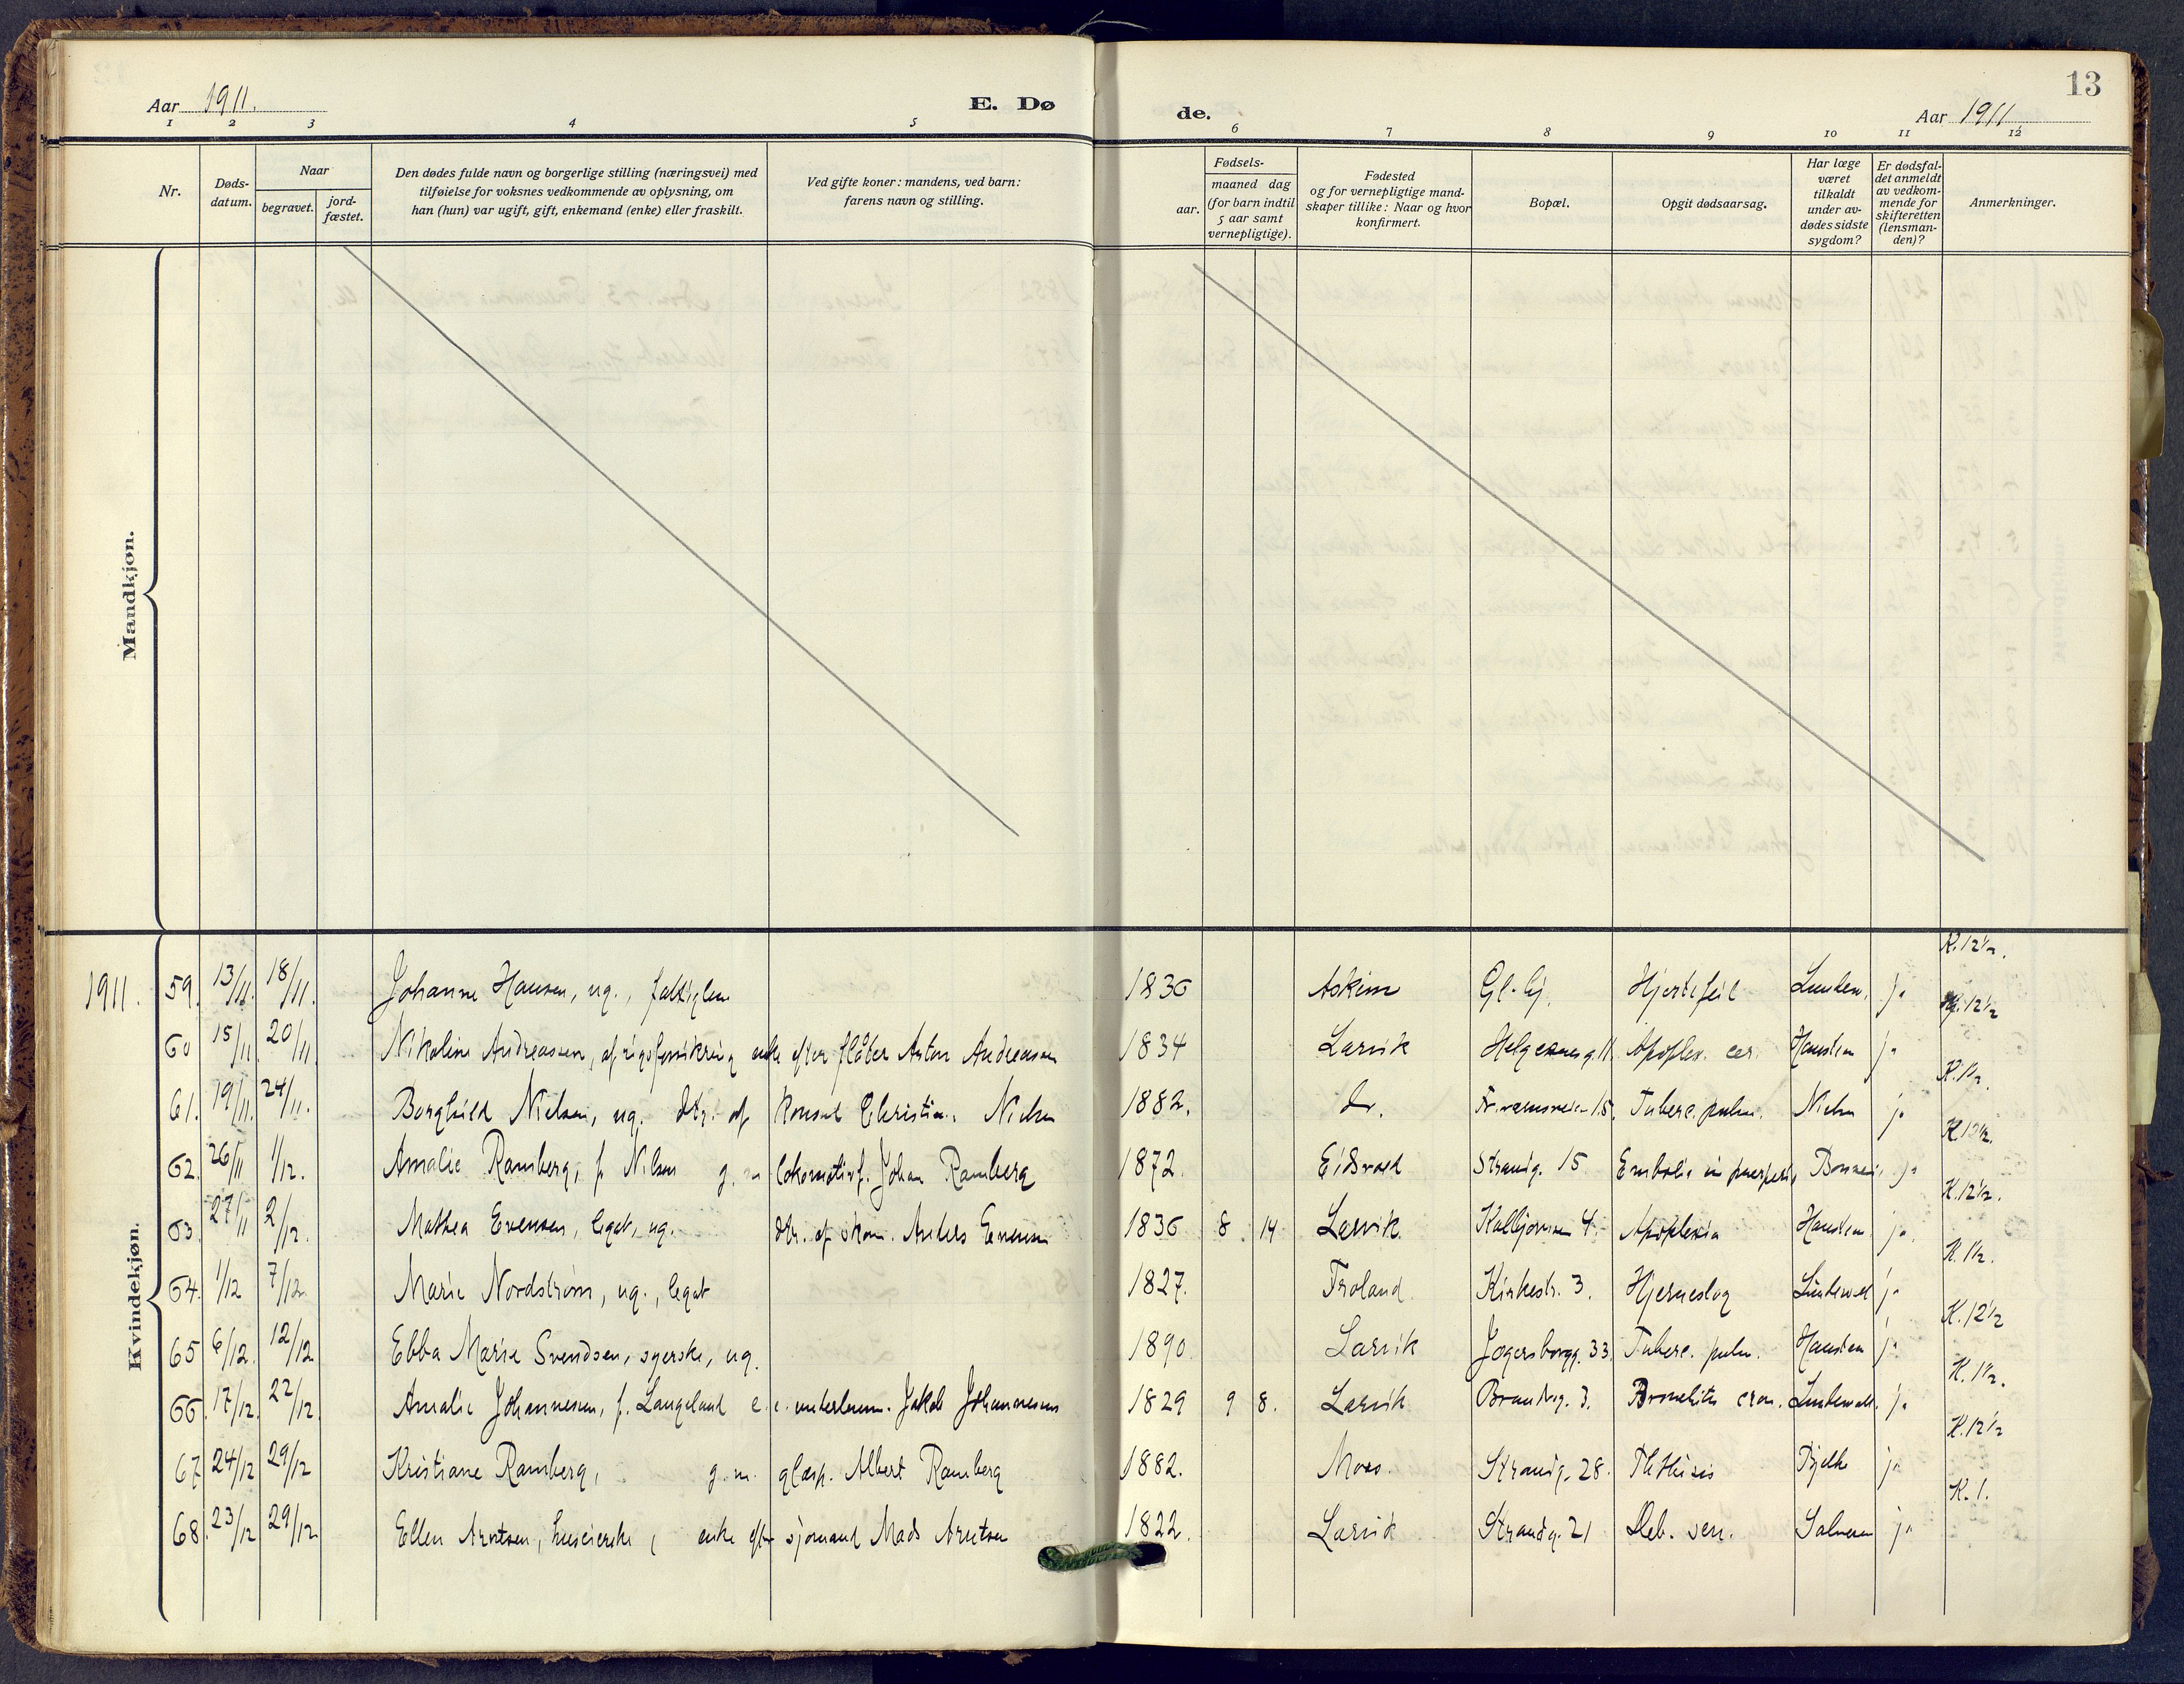 Aar 1911. E. Dø de. Aar 1911 13
1 2 3 4 5 6 7 8 9 10 11 12
Nr.
Døds-datum.
Naar
begravet.
jord-fæstet.
Den dødes fulde navn og borgerlige stilling (næringsvei) med
tilføielse for voksnes vedkommende av oplysning, om
han (hun) var ugift, gift, enkemand (enke) eller fraskilt.
Ved gifte koner: mandens, ved barn:
farens navn og stilling.
Fødsels-
aar.
maaned dag
(for barn indtil
5 aar samt
vernepligtige).
Fødested
og for vernepligtige mand-
skaper tillike: Naar og hvor
konfirmert.
Bopæl.
Opgit dødsaarsag.
Har læge
været
tilkaldt
under av-
dødes sidste
sygdom?
Er dødsfal-
det anmeldt
av vedkom-
mende for
skifteretten
(lensman-
den)?
Anmerkninger.
Mandkjøn.
Kvindekjøn.
K. 12½.
1911. 59. 13/11. 18/11. Johanne Hansen, ug., fattiglem 1836 Askim Gl. Hjertefeil Lunden, ja
12½
60 15/11 20/11. Nikoline Andreassen, enke efter fløter Anton Andreassen 1834 Larvik Helgesensg. 11 Apoplex. cer. Haustien ja
K. 1½.
61. 19/11. 24/11. Borghild Nielsen, ug. dtr. af Konsul Christian Nielsen 1882. do. 15. Tuberc. pulm. Nielsen ja
K. 12½.
62. 26/11 1/12. Amalie Ramberg, f. Nilsen g. m. lokomotivf. Johan Ramberg 1872. Eidsvold Strandg. 15 Emboli in puerperi, ja
K. 12½.
63. 27/11 2/12. Mathea Evensen, legat, ug. dtr. af Anders Evensen 1836 8 14 Larvik. 4. Apoplexia Haustien ja.
K. 1½.
64. 1/12 7/12. Marie Nordstrøm, ug., legat 1827. Froland. Kirkestr. 3. Hjerneslag Lindewall ja
K. 12½
65 6/12. 12/12 Ebba Marie Svendsen, syerske, ug. 1890. Larvik Jegersborgg. 33. Tuberc. pulm. Haustien ja
K. 1½.
66. 17/12. 22/12. Amalie Johannesen, f. Langeland e. e. Jakob Johannesen 1829 9 8. Larvik 3. Bronchitis cron. Lindewall. ja
K. 12½
67 24/12 29/12 Kristiane Ramberg, g. m. glasp. Albert Ramberg 1882. Moss. Strandg. 28. Phthisis Bjelke ja
K. 1.
68. 23/12 29/12 Ellen Arntsen, huseierske, enke efter sjømand Mads Arntsen 1822. Larvik Strandg. 21 Deb. sen. Salvesen ja